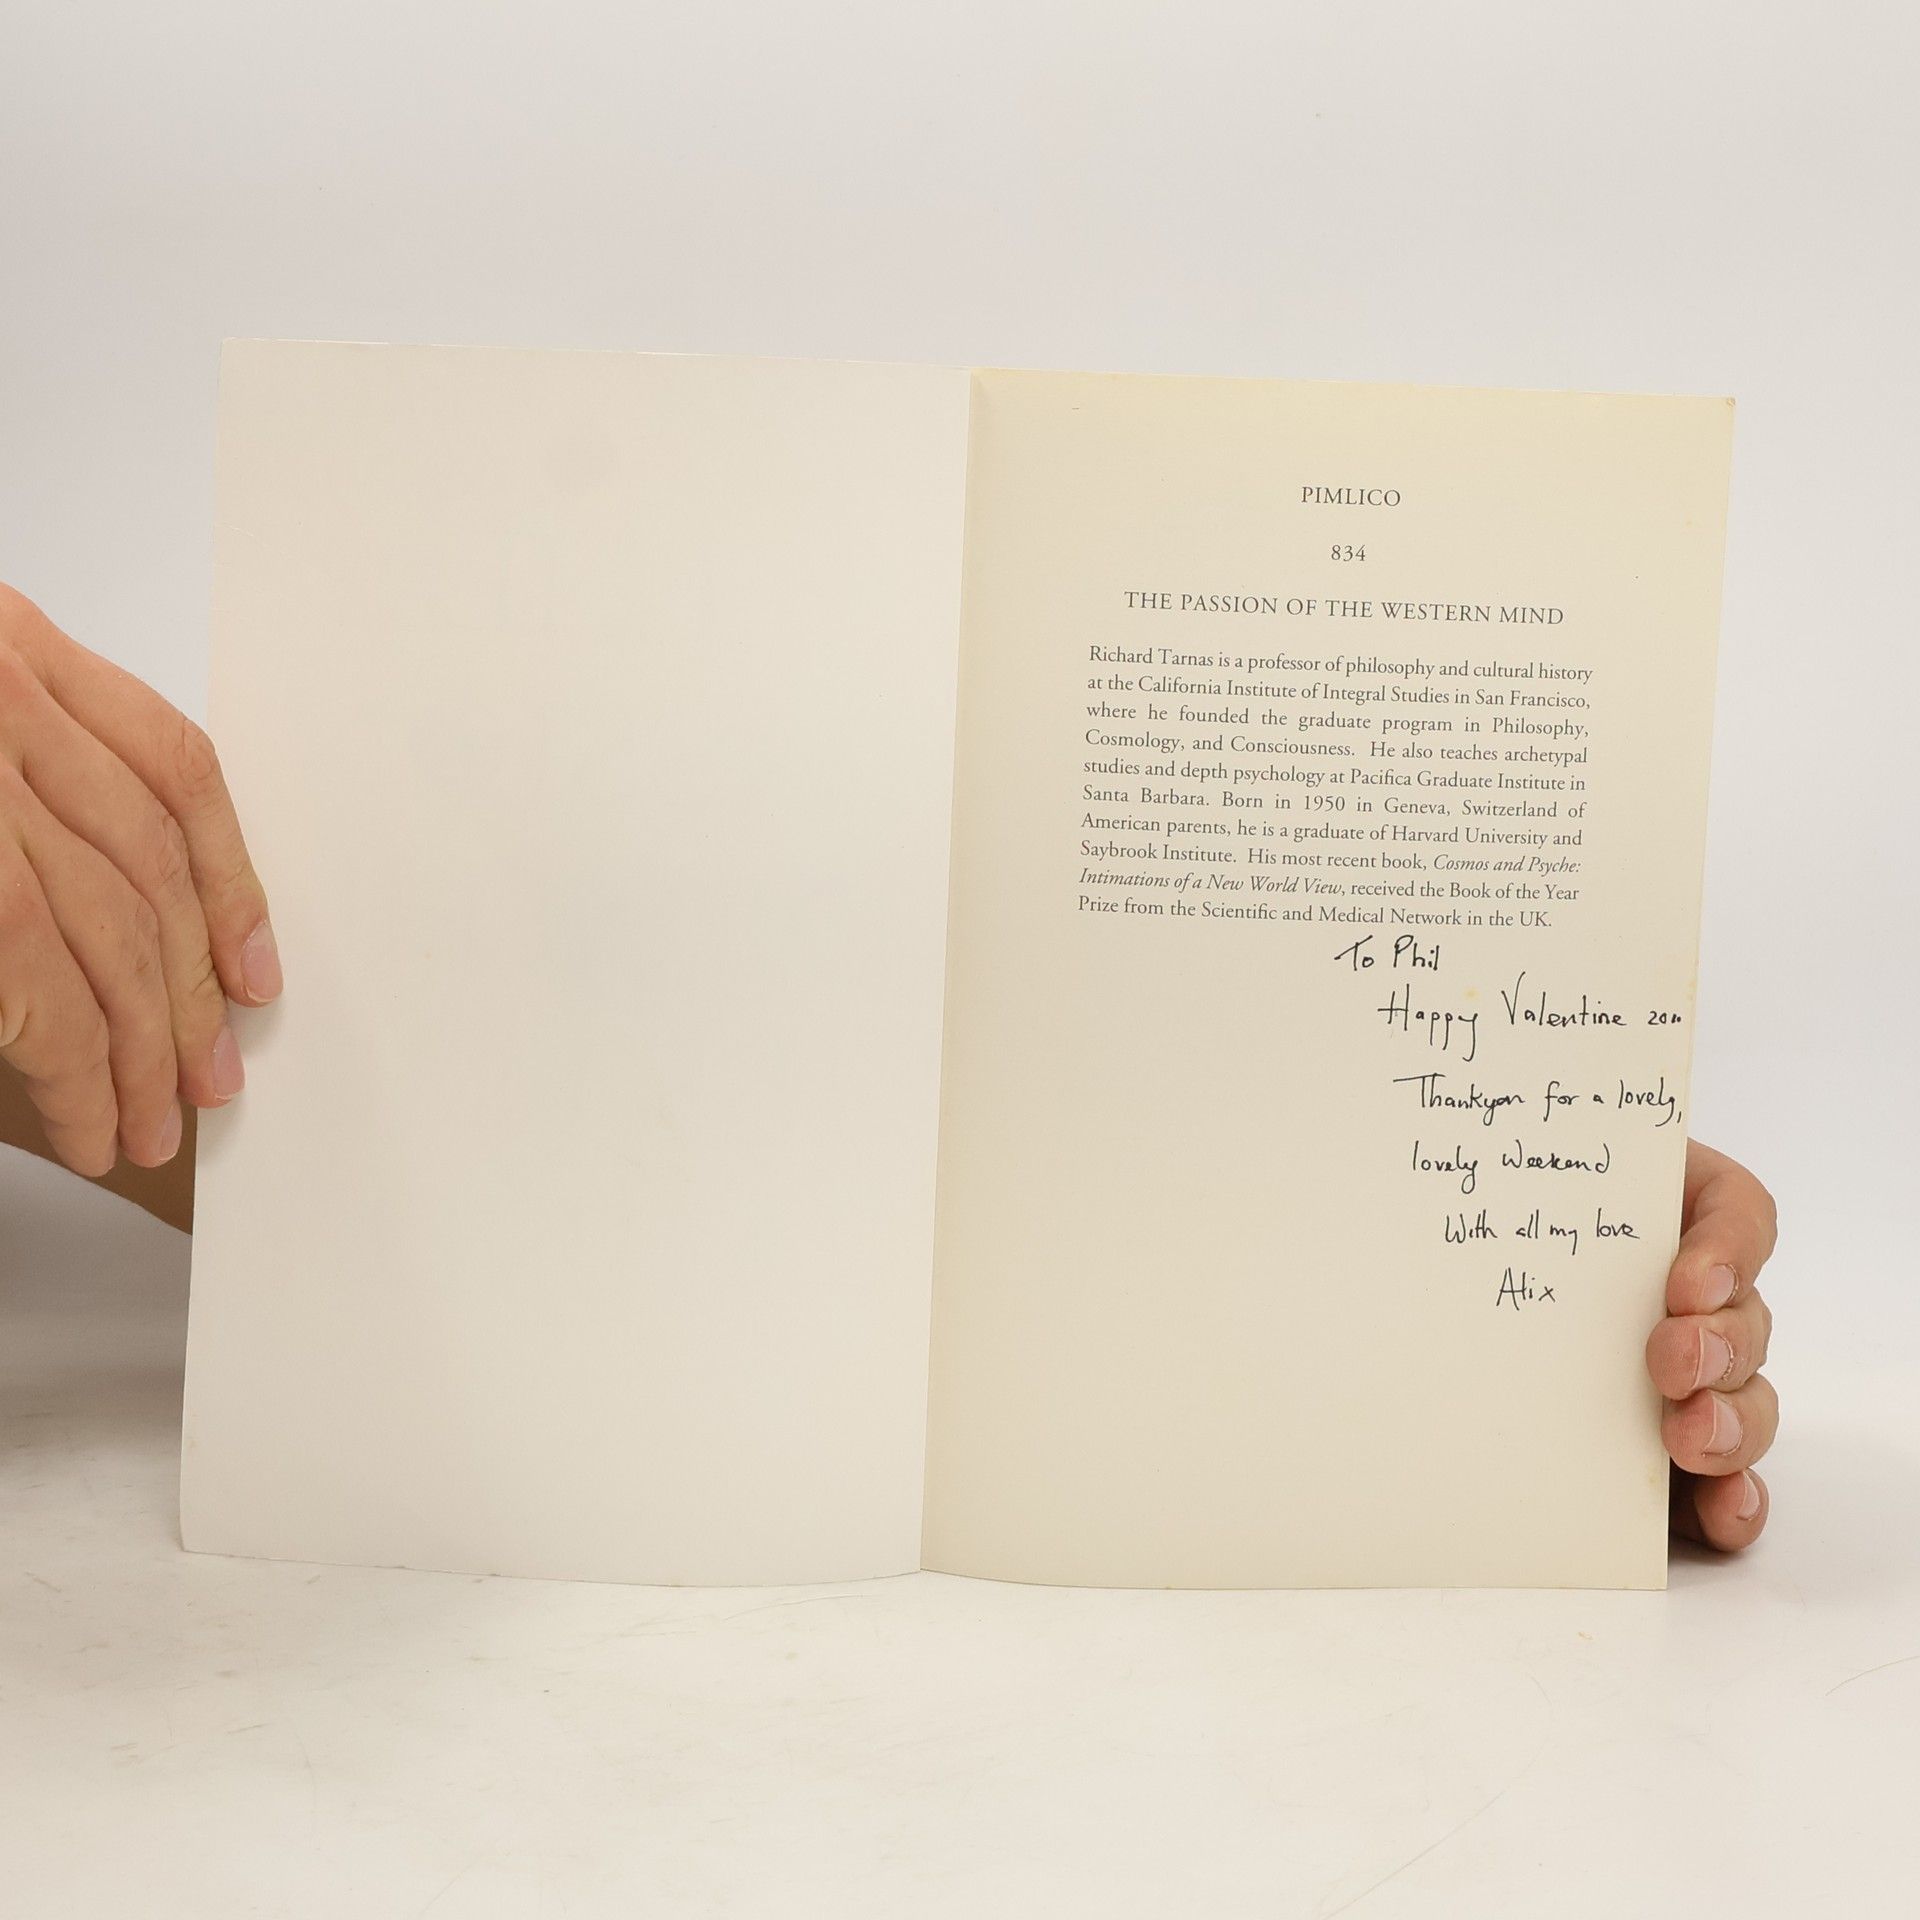 PIMLICO
834
THE PASSION OF THE WESTERN MIND
Richard Tarnas is a professor of philosophy and cultural history
at the California Institute of Integral Studies in San Francisco,
where he founded the graduate program in Philosophy,
Cosmology, and Consciousness. He also teaches archetypal
studies and depth psychology at Pacifica Graduate Institute in
Santa Barbara. Born in 1950 in Geneva, Switzerland of
American parents, he is a graduate of Harvard University and
Saybrook Institute. His most recent book, Cosmos and Psyche:
Intimations of a New World View, received the Book of the Year
Prize from the Scientific and Medical Network in the UK.
To Phil
Happy Valentine
Thankyou for a lovely,
lovely weekend
With all my love
Alix